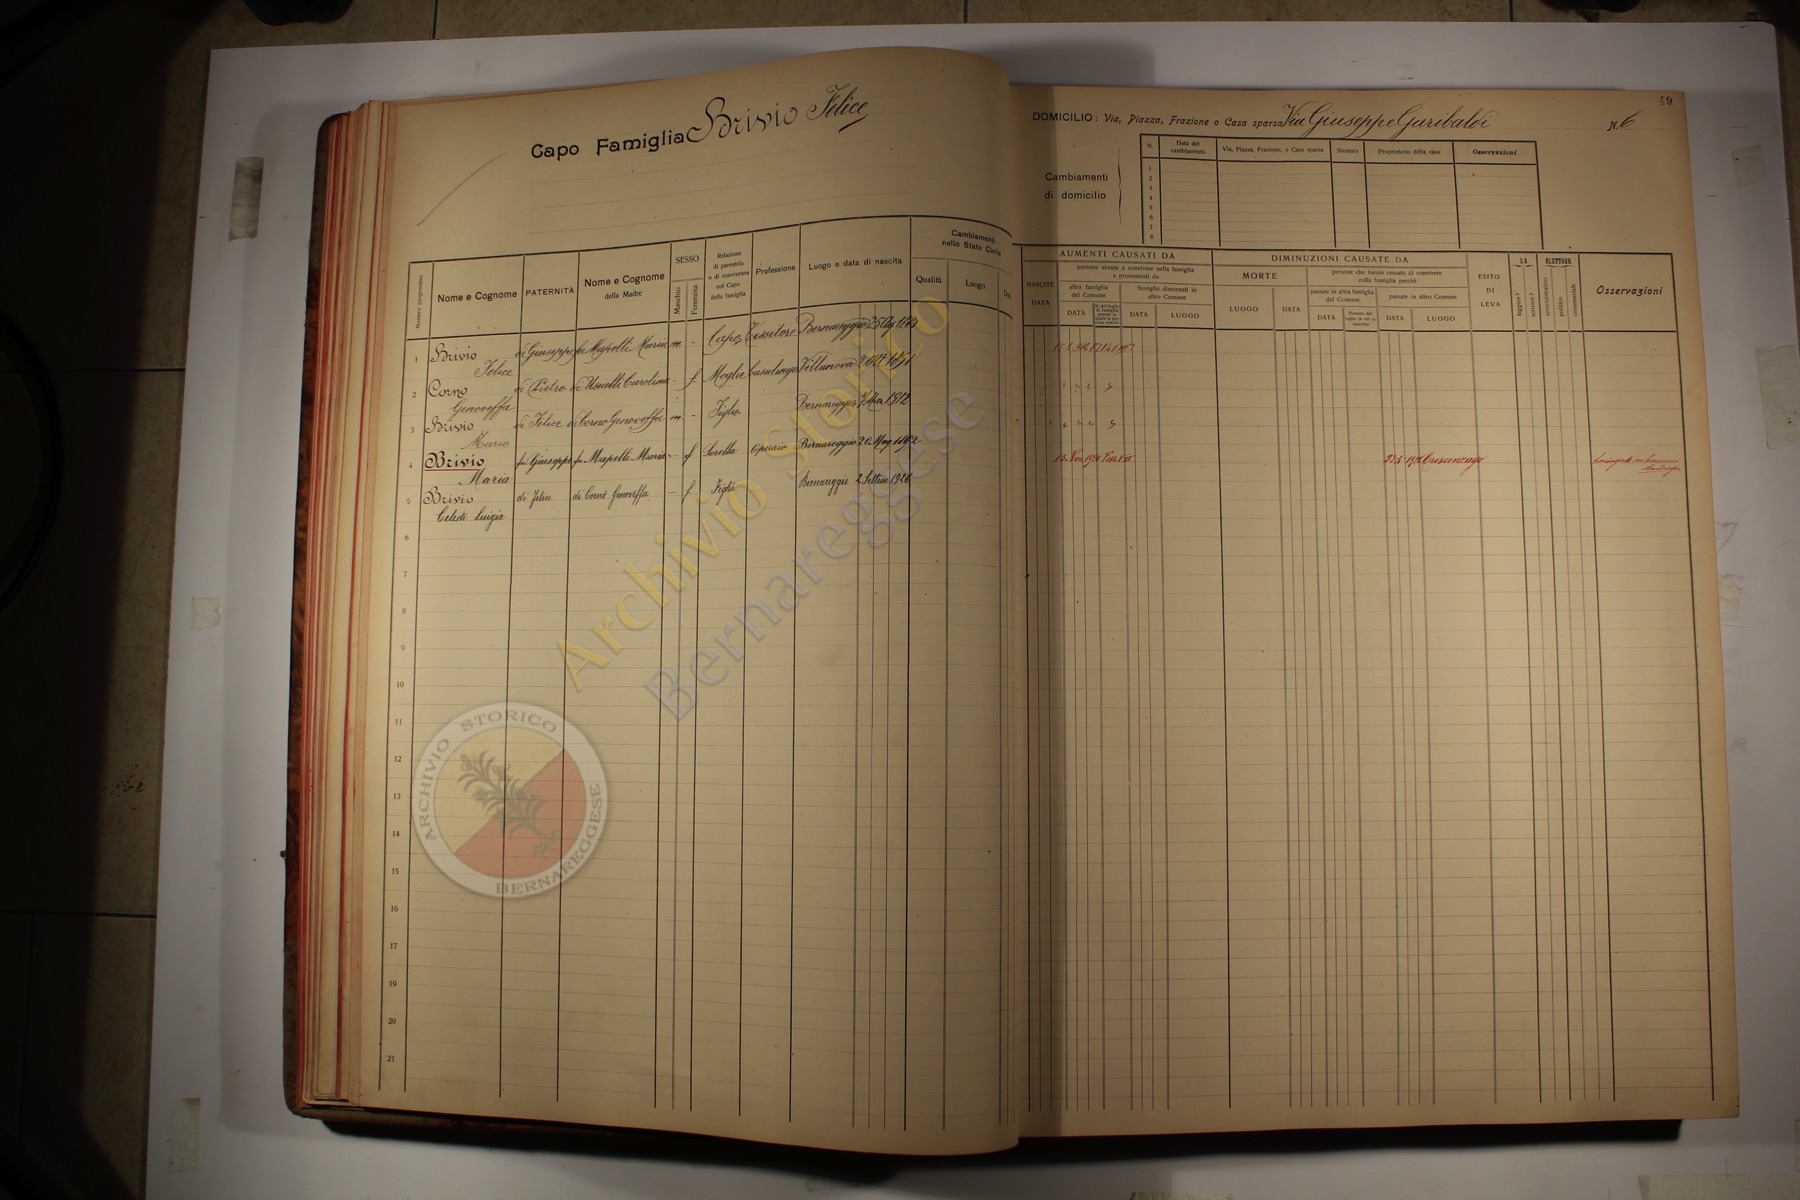 49
Capo Famiglia Brivio Felice
DOMICILIO: Via, Piazza, Frazione o Casa sparsa Via Giuseppe Garibaldi N. 6
Cambiamenti
di domicilio
N. Data del cambiamento Via, Piazza, Frazione, o Casa sparsa Numero Proprietario della casa Osservazioni
1
2
3
4
5
6
7
8
Numero progressivo
Nome e Cognome
PATERNITÀ
Nome e Cognome
della Madre
SESSO
Maschio
Femmina
Relazione
di parentela
o di convivenza
col Capo
della famiglia
Professione
Luogo e data di nascita
Cambiamenti
nello Stato Civile
Qualità
Luogo
AUMENTI CAUSATI DA
NASCITE
DATA
persone venute a convivere nella famiglia
e provenienti da
altra famiglia
del Comune
DATA
famiglie dimoranti in
altro Comune
DATA
LUOGO
DIMINUZIONI CAUSATE DA
MORTE
LUOGO
DATA
persone che hanno cessato di convivere
colla famiglia perchè
passate in altra famiglia
del Comune
DATA
passate in altro Comune
DATA
LUOGO
ESITO
DI
LEVA
SA
leggere?
scrivere?
ELETTORE
amministrativo
politico
commerciale
Osservazioni
1 Brivio Felice di Giuseppe fu Mapelli Maria m. - Capo Tessitore Bernareggio
2 Corno Genoveffa di Pietro di Usuelli Carolina - f Moglie Casalinga Villanova
3 Brivio Mario di Felice di Corno Genoveffa m - Figlio Bernareggio
4 Brivio Maria fu Giuseppe fu Mapelli Maria - f Sorella Operaia Bernareggio 20 Mag Crescenzago
5 Brivio Celeste Luigia di Felice di Corno Genoveffa - f Figlia Bernareggio 2 Settem 1926
6
7
8
9
10
11
12
13
14
15
16
17
18
19
20
21
Archivio storico
Bernareggese
ARCHIVIO STORICO
BERNAREGGESE